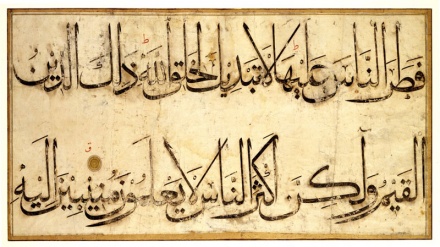 فطر الناس عليها لا تبديل لخلق الله ذلك الدين
القيم ولكن أكثر الناس لا يعلمون منيبين إليه